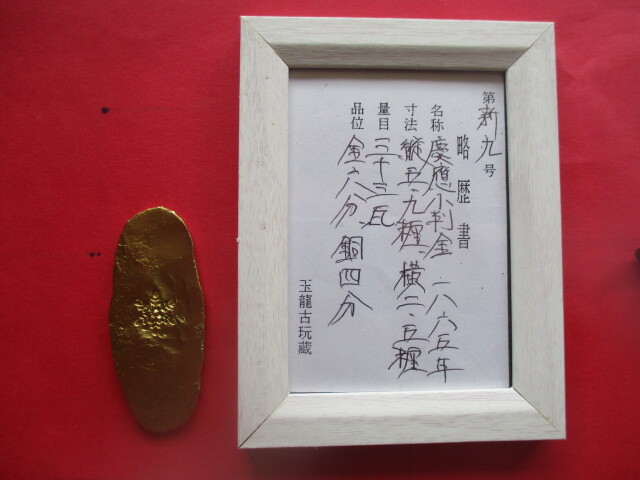 第新九号
略歴書
名称 慶應小判金 一八六五年
寸法 縦五、九糎、横二、五糎
量目 三十三瓦
品位 金六八分、銅四分
玉龍古玩蔵